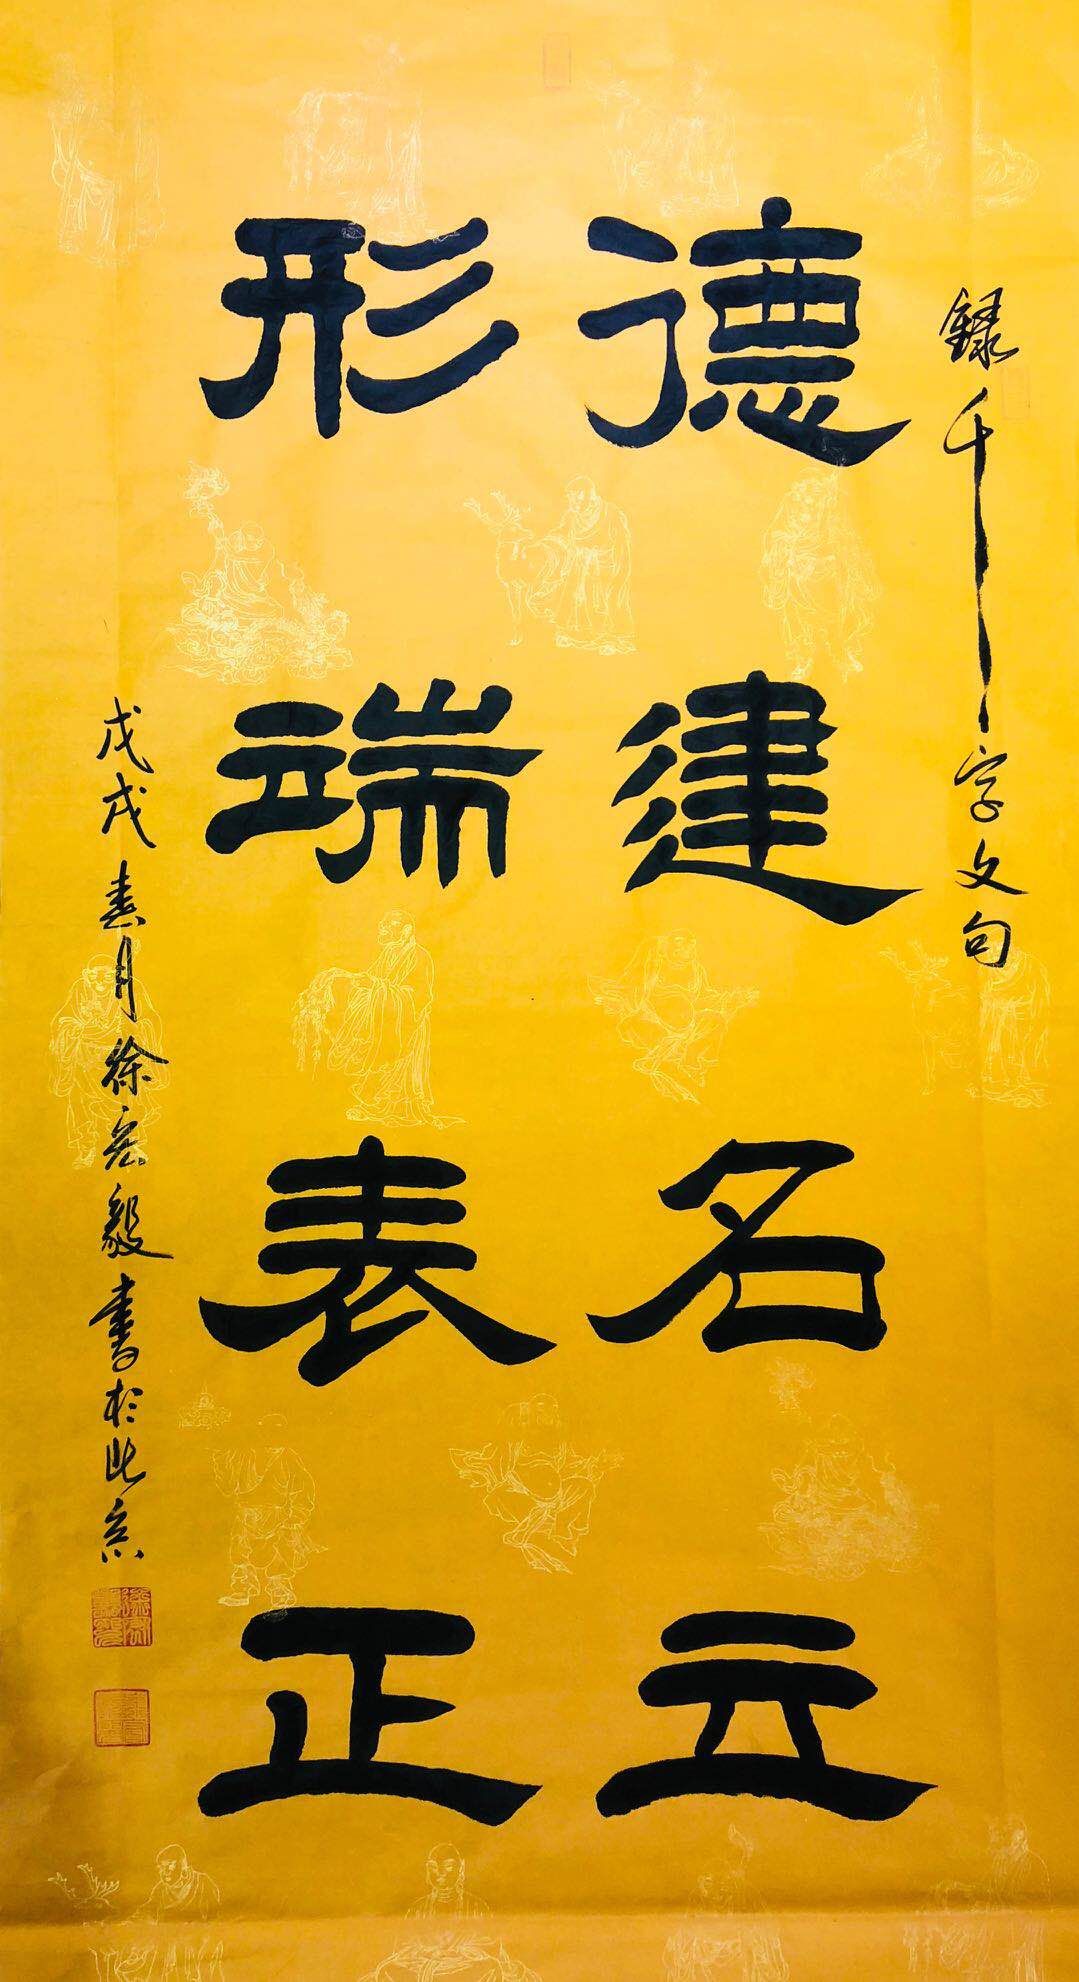 錄千字文句
德建名立
形端表正
戊戌春月徐宏毅書於北京